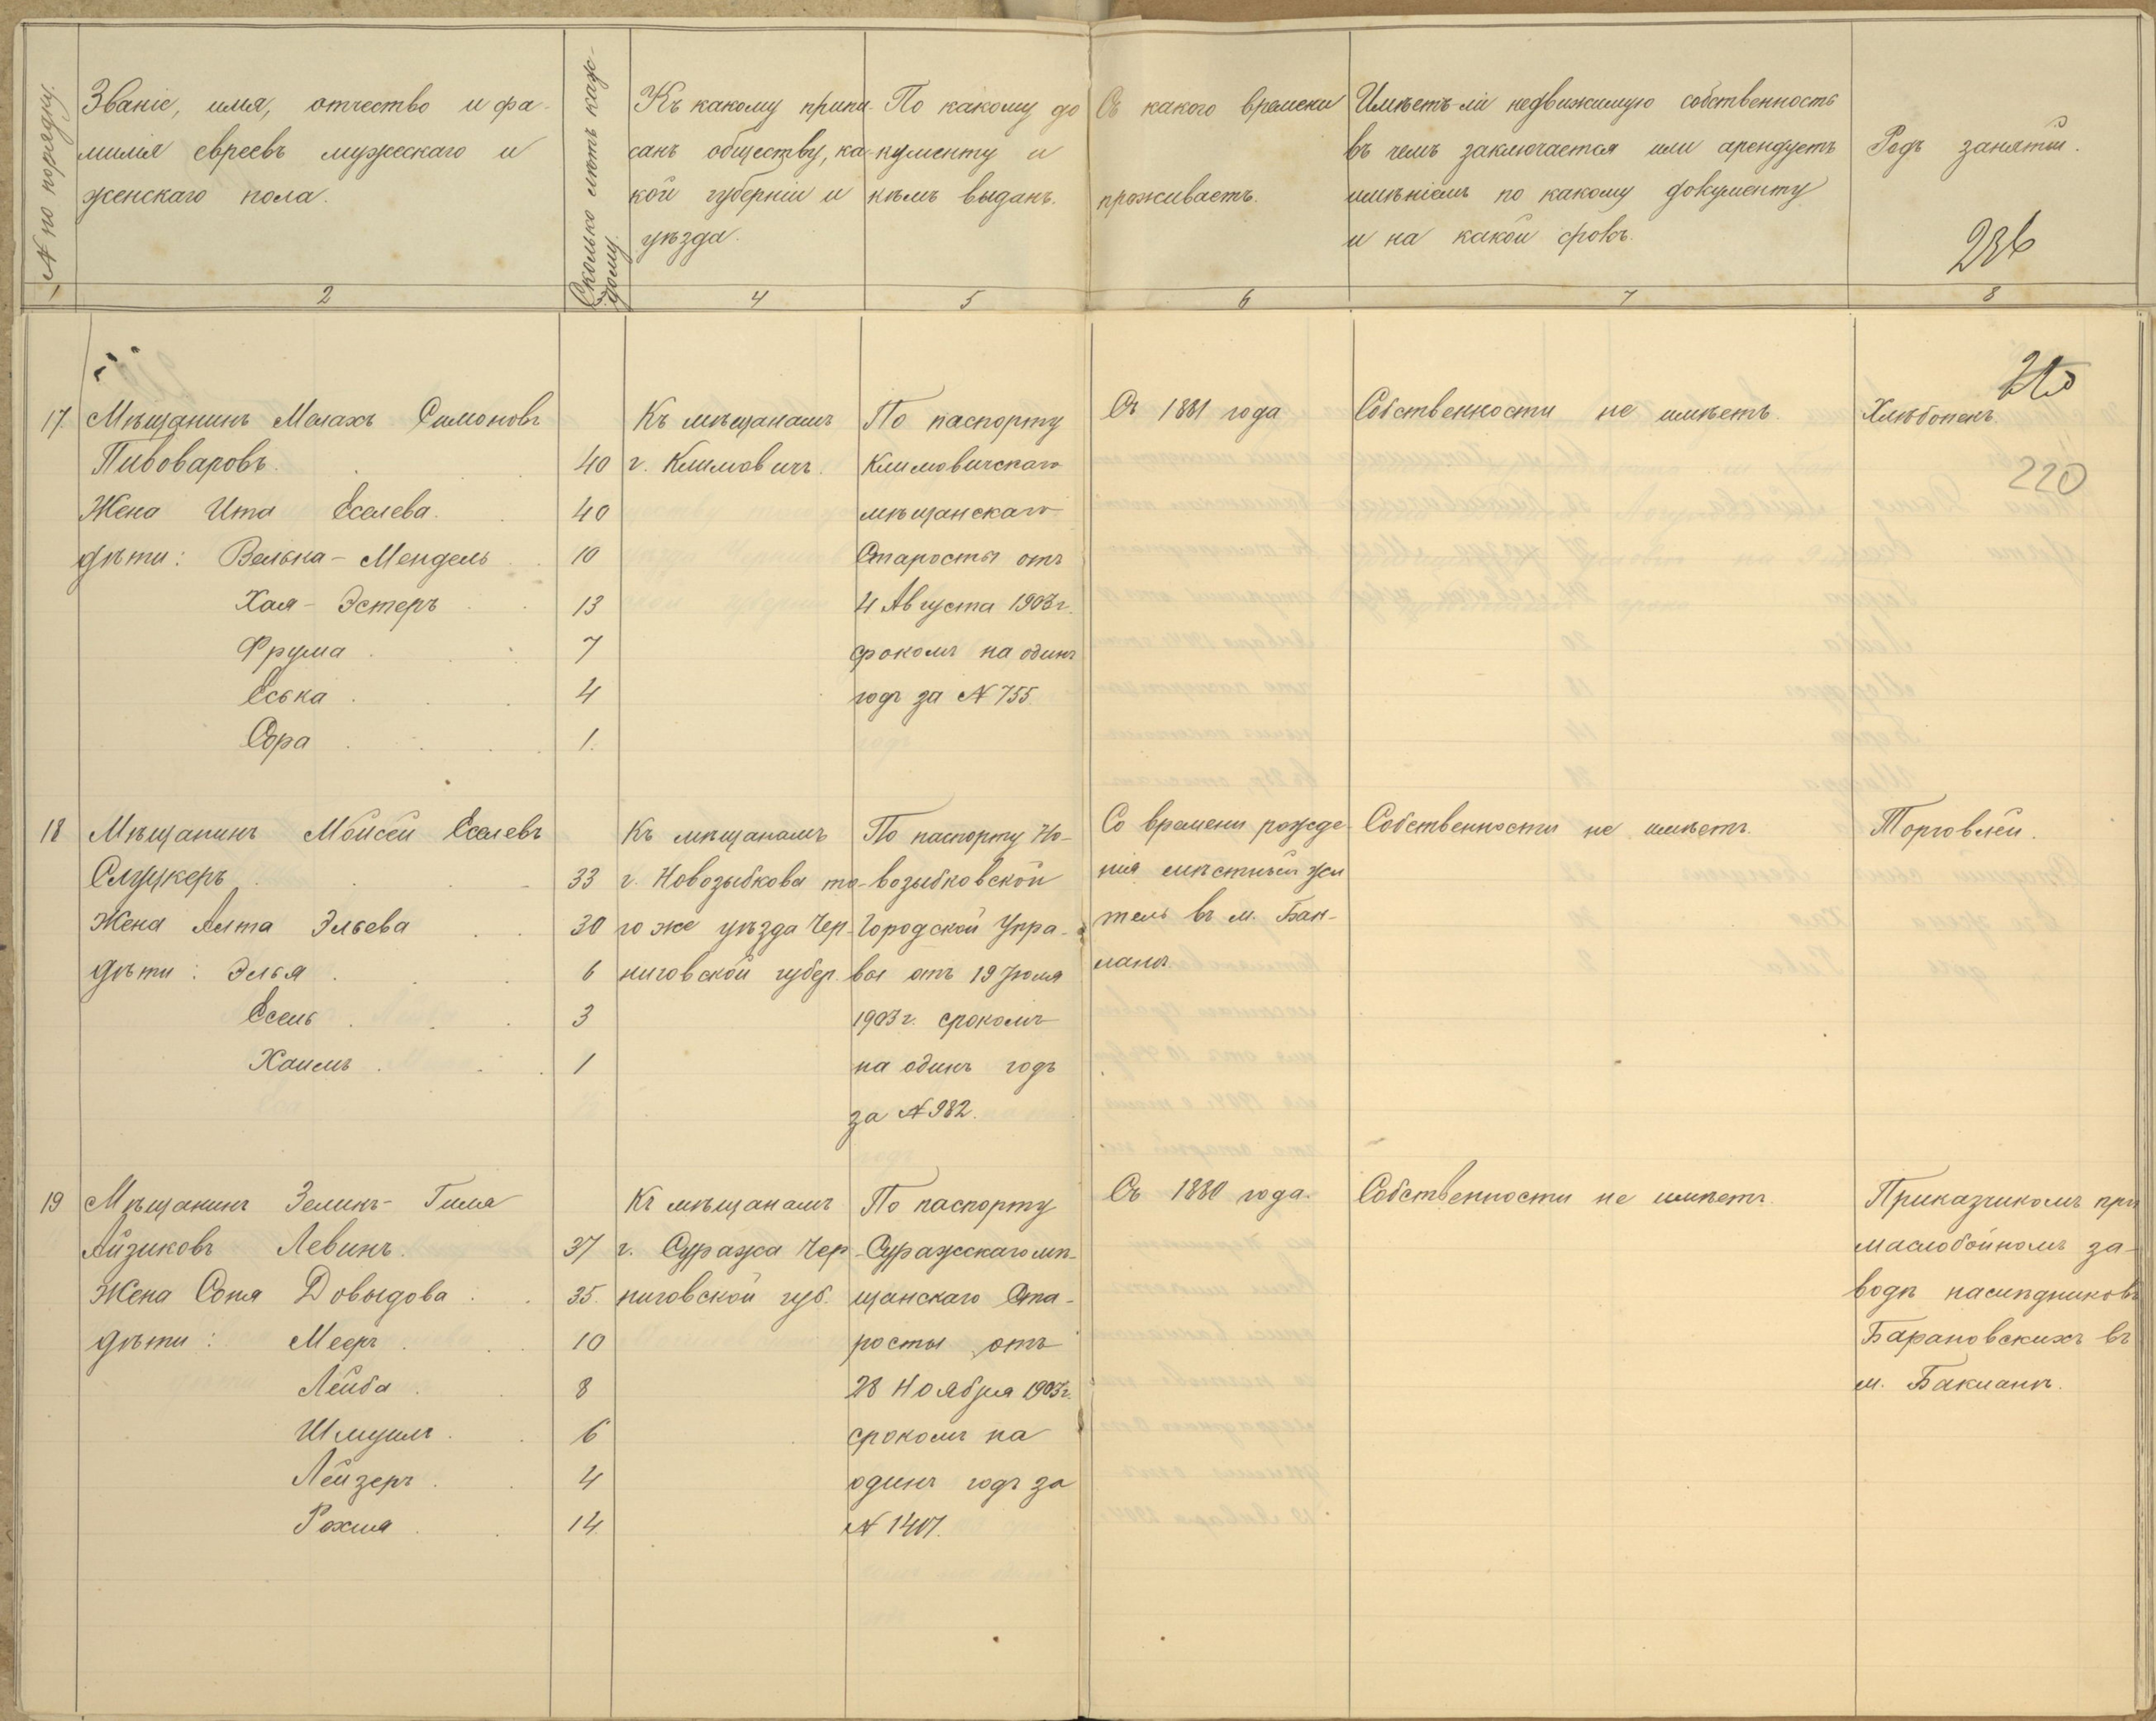 № по порядку.
Званіе, имя, отчество и фа-
милія евреевъ мужескаго и
женскаго пола.
Сколько лѣтъ каж-
дому.
Къ какому припи-
санъ обществу, ка-
кой губерніи и
уѣзда.
По какому до
кументу и
кѣмъ выданъ.
Съ какого времени
проживаетъ.
Имѣетъ-ли недвижимую собственность
въ чемъ заключается или арендуетъ
имѣніемъ по какому документу
и на какой срокъ.
Родъ занятій.
236
1 2 4 5 6 7 8
17 Мѣщанинъ Малахъ Симоновъ
Пивоваровъ. 40
Жена Ита Еселева. 40
дѣти: Велька-Мендель 10
Хая-Эстеръ 13
Фрума 7
Еська 4
Сора 1.
Къ мѣщанамъ
г. Климовичъ.
По паспорту
Климовичскаго
мѣщанскаго
Старосты отъ
4 Августа 1903 г.
срокомъ на одинъ
годъ за № 755
Съ 1881 года
Собственности не имѣетъ.
Хлѣбопекъ.
220
18 Мѣщанинъ Мойсей Еселевъ
Слуцкеръ 33
Жена Алта Эльева 30
дѣти: Элья 6
Есель 3
Хаимъ 1
Къ мѣщанамъ
г. Новозыбкова то-
го же уѣзда Чер-
ниговской губер.
По паспорту Но-
возыбковской
Городской Упра-
вы отъ 19 Іюля
1903 г. срокомъ
на одинъ годъ
за № 982.
Со времени рожде-
нія мѣстный жи
тель въ м. Бак-
ланѣ
Собственности не имѣетъ.
Торговлей.
19 Мѣщанинъ Зеликъ-Гиля
Айзиковъ Левинъ. 37
Жена Соня Довыдова 35.
дѣти: Мееръ 10
Лейба 8
Шмуилъ 6
Лейзеръ 4
Рохля 14
Къ мѣщанамъ
г. Суража Чер-
ниговской губ.
По паспорту
Суражскаго мѣ-
щанскаго Ста-
росты отъ
28 Ноября 1903 г.
срокомъ на
одинъ годъ за
№ 1407.
Съ 1880 года.
Собственности не имѣетъ.
Приказчикомъ при
маслобойномъ за-
водѣ наслѣдниковъ
Барановскихъ въ
м. Бакланѣ.